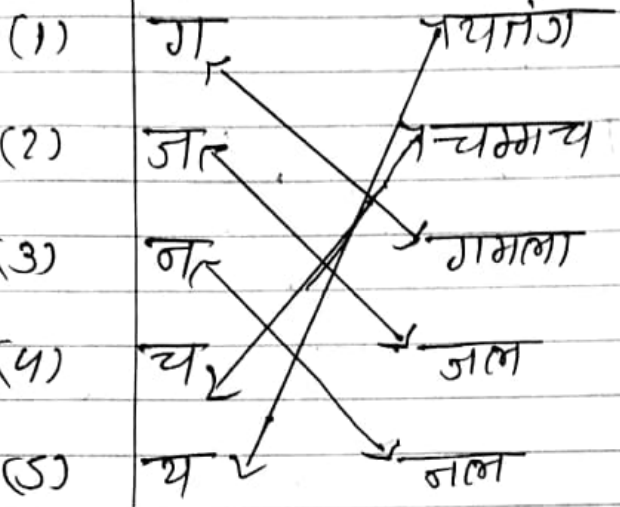 (1) ग यतंग
(2) ज चम्मच
(3) न गमला
(4) च जल
(5) य नल